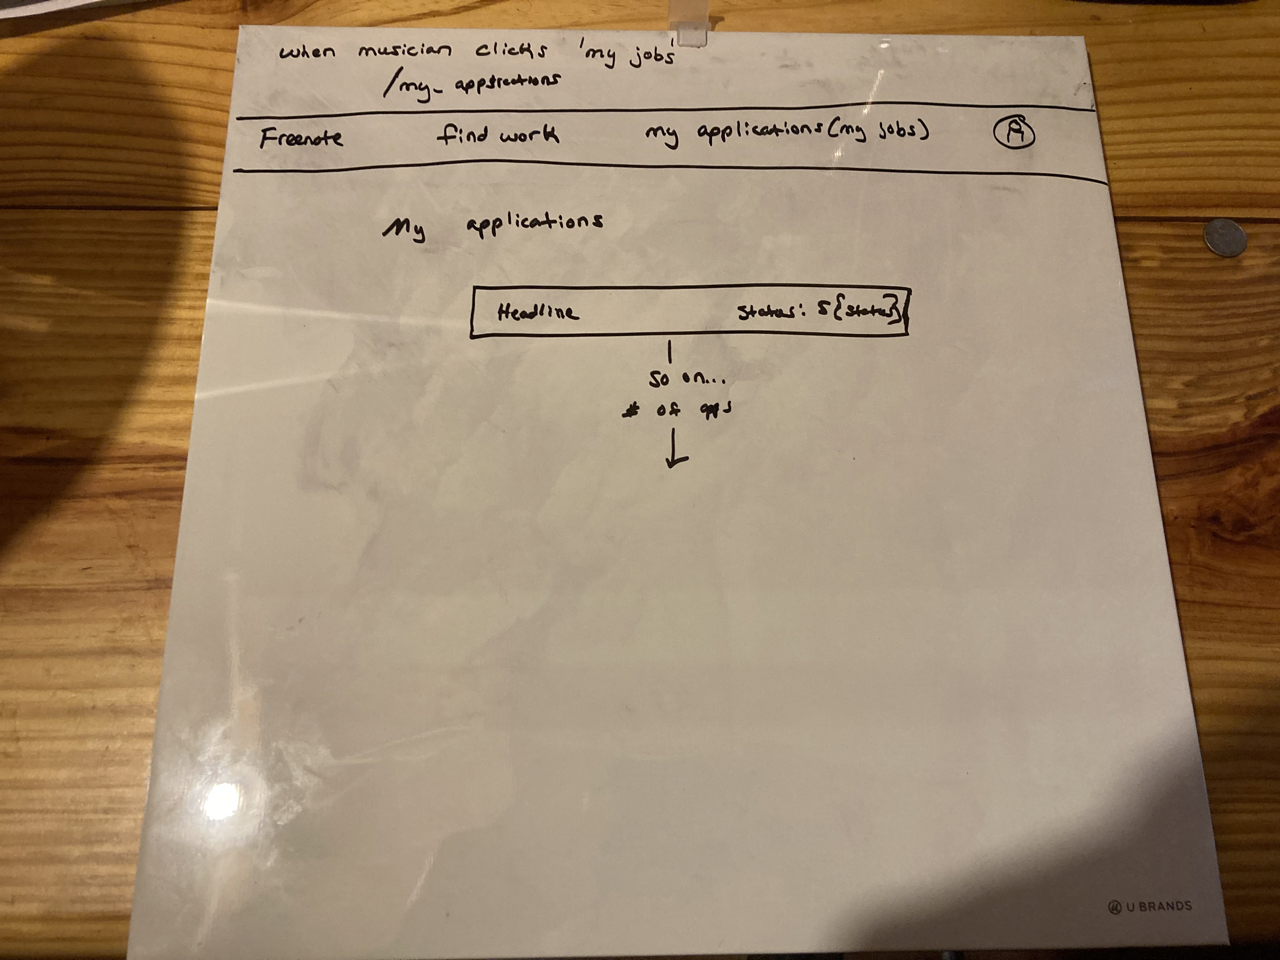 when musician clicks 'my jobs'
/my_ applications
Freenote find work my applications (my jobs)
My applications
Headline Status: ${status}
so on...
# of apps
U BRANDS